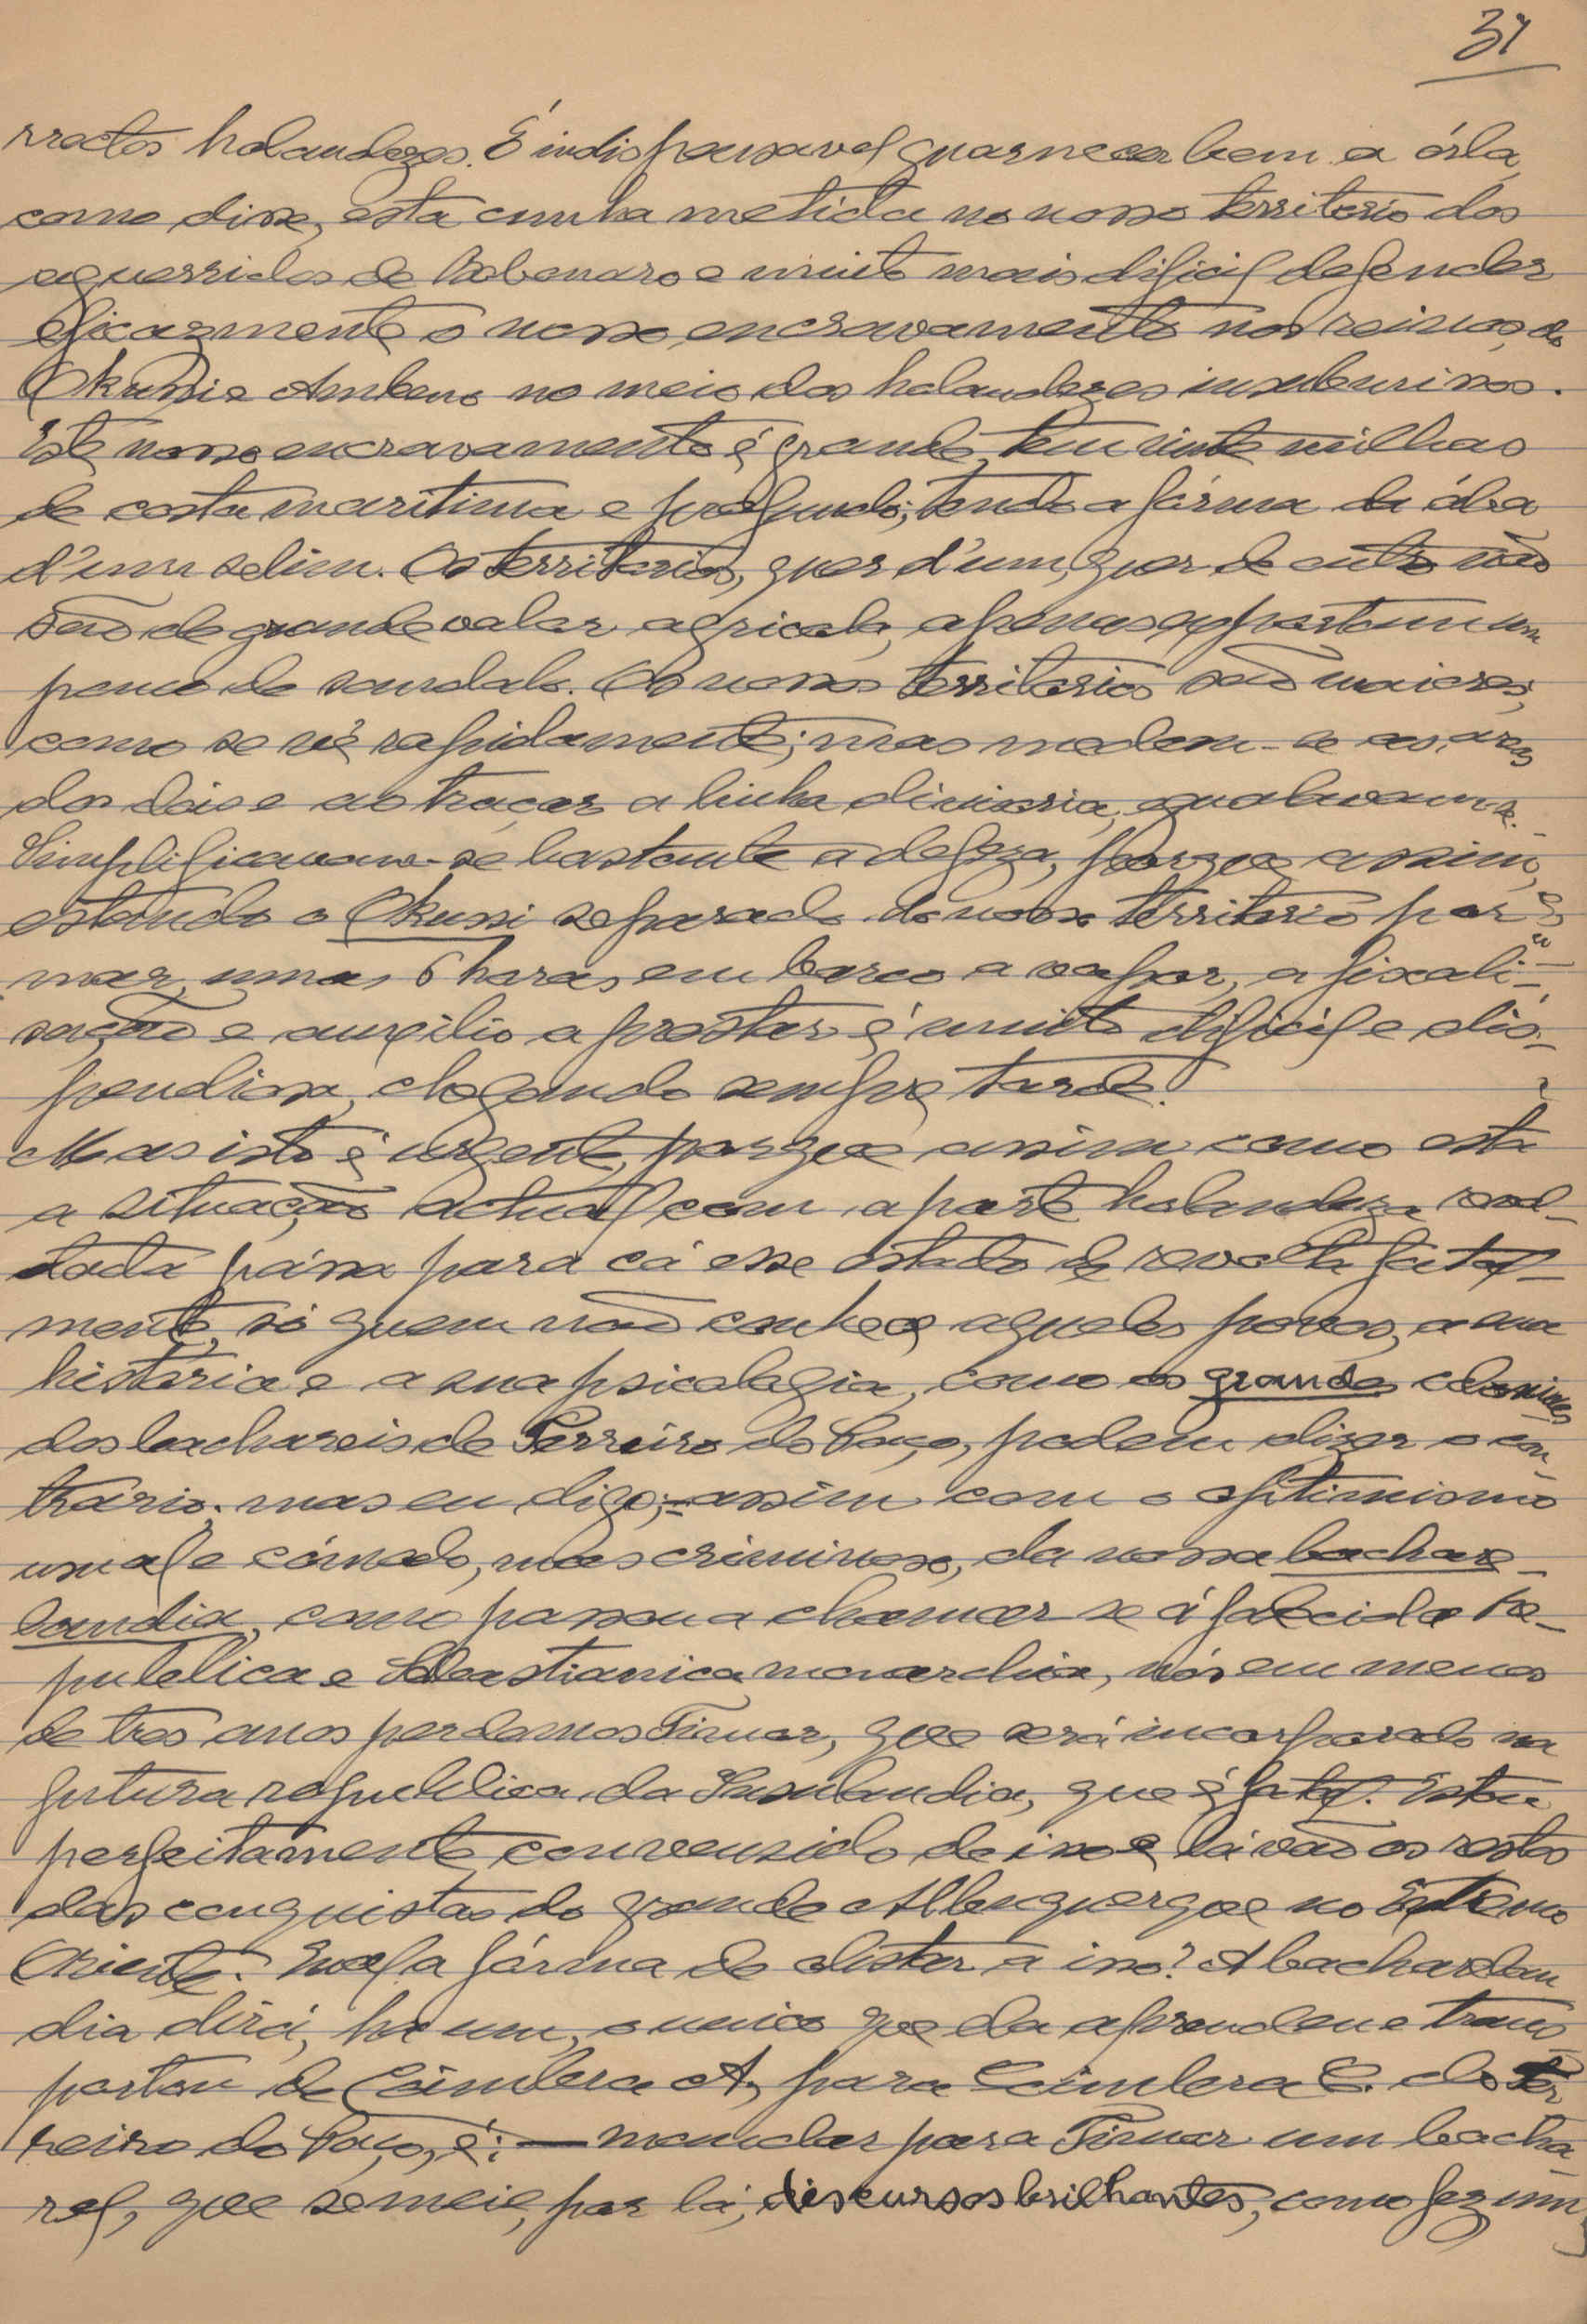 37
rractos holandezes. É indispensavel guarnecer bem a órla,
como disse, esta cunha metida no nosso territorio dos
aguerridos de Bobonaro e muito mais dificil defender
eficazmente o nosso encravamento nos reinos de
Okussi e Ambeno no meio dos holandezes insubmissos.
Este nosso encravamento é grande, tem vinte milhas
de costa maritima e profundo, tendo a fórma da ába
d'um selim. Os territorios, quer d'um, quer de outro não
são de grande valor agricola, apenas exportam um
pouco de sandalo. Os nossos territorios são maiores,
como se vê rapidamente; mas medem-se as areas
dos dois e ao traçar a linha divisoria, egualavam-se.
Simplificavam-se bastante a defeza, porque assim,
estando o Okussi separado do nosso territorio por
mar, umas 6 horas em barco a vapor, a fiscali-
sação e auxilio a prestar é muito dificil e dis-
pendiosa, chegando sempre tarde.
Mas isto é urgente, porque assim como esta
a situação actual com a parte holandeza revol-
tada pássa para cá esse estado de revolta fatal-
mente, só quem não conhece aqueles povos, a sua
historia e a sua psicologia, como os grandes coloniaes
dos bachareis de Terreiro do Paço, podem dizer o con-
trário; mas eu digo;=assim com o optimismo
usual e cómodo, mas criminoso, da nossa bachare-
landia, como passou a chamar-se á falecida re-
publica e Sebastianica monarchia, nós em menos
de tres anos perdemos Timor, que será incorporado na
futura republica da Insulandia, que é fatal. Estou
perfeitamente convencido de isso e lá vão os restos
das conquistas do grande Albuquerque no Extremo
Oriente. Qual a fórma de obstar a isso? A bacharelan
dia dirá, ha um, o unico que ela aprendeu e trans-
portou de Coimbra A, para Coimbra C. do Ter-
reiro do Paço, é: — mandar para Timor um bacha-
rel, que semeie, por lá, discursos brilhantes, como fez um